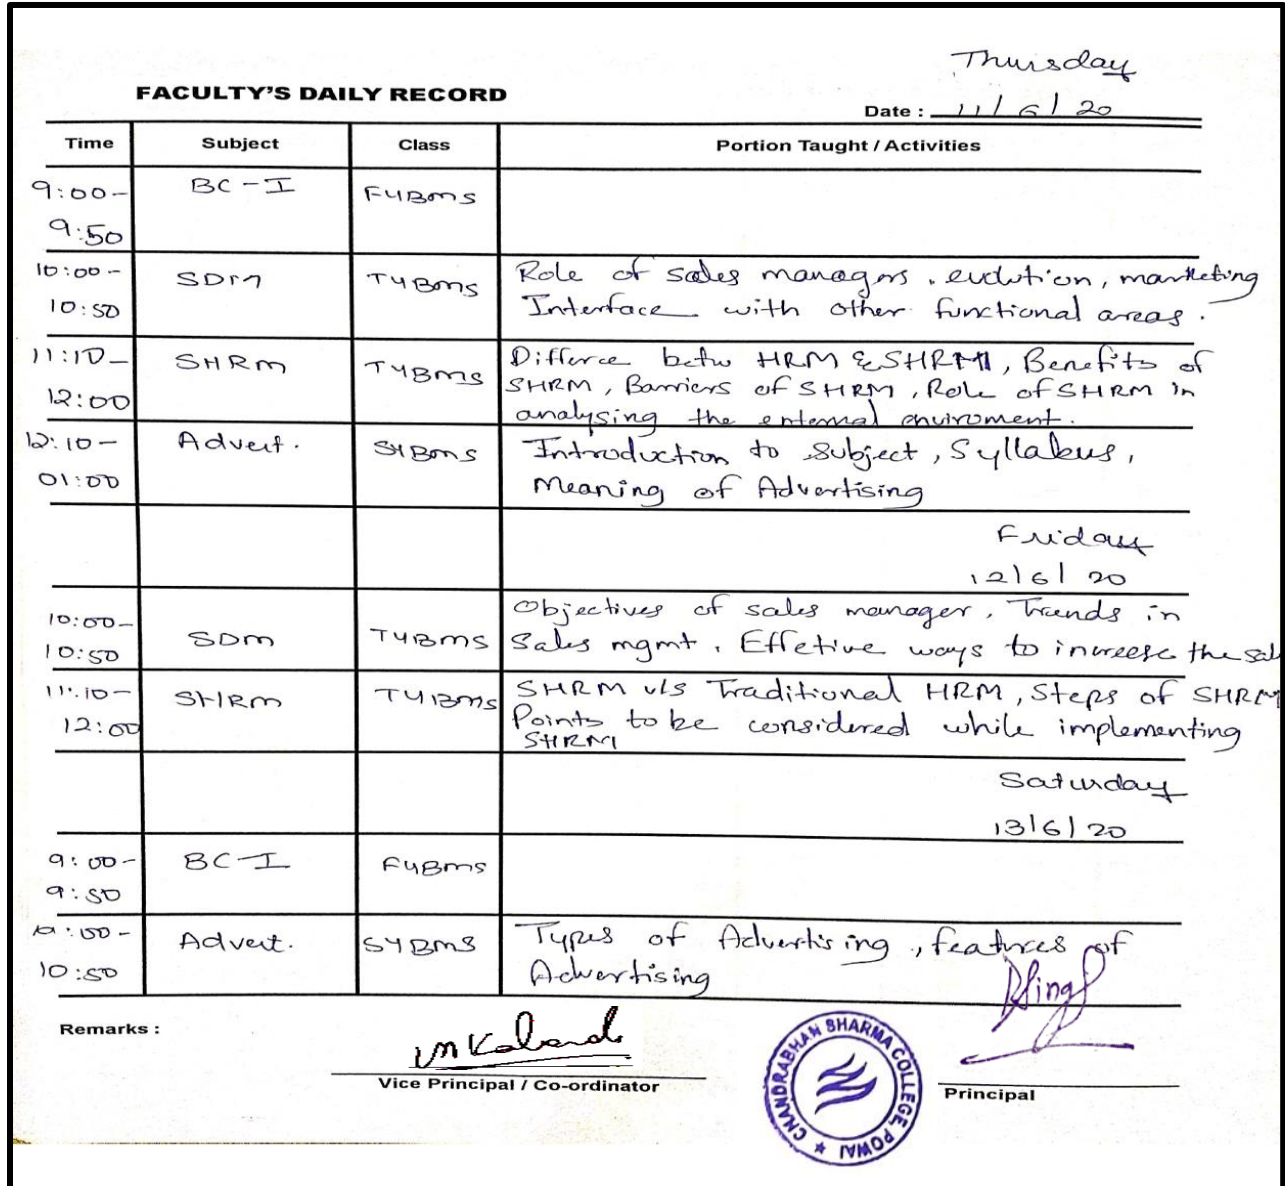 Thursday
FACULTY'S DAILY RECORD
Date : 11/6/20
Time Subject Class Portion Taught / Activities
9:00- BC-I FYBMS
9:50
10:00- SDM TYBMS Role of sales managers. evolution, marketing
10:50 Interface with other functional areas.
11:10- SHRM TYBMS Differce betw HRM & SHRM, Benefits of
12:00 SHRM, Barriers of SHRM, Role of SHRM in
analysing the external enviroment.
12:10- Advert. SYBMS Introduction to subject, Syllabus,
01:00 Meaning of Advertising
Friday
12/6/20
10:00- SDM TYBMS Objectives of sales manager. Trends in
10:50 Sales mgmt. Effetive ways to increese the sal
11:10- SHRM TYBMS SHRM v/s Traditional HRM, Steps of SHRM
12:00 Points to be considered while implementing
SHRM
Saturday
13/6/20
9:00- BC-I FYBMS
9:50
10:00- Advert. SYBMS Types of Advertising, features of
10:50 Advertising
Remarks :
Vice Principal / Co-ordinator
CHANDRABHAN SHARMA COLLEGE, POWAI
Principal